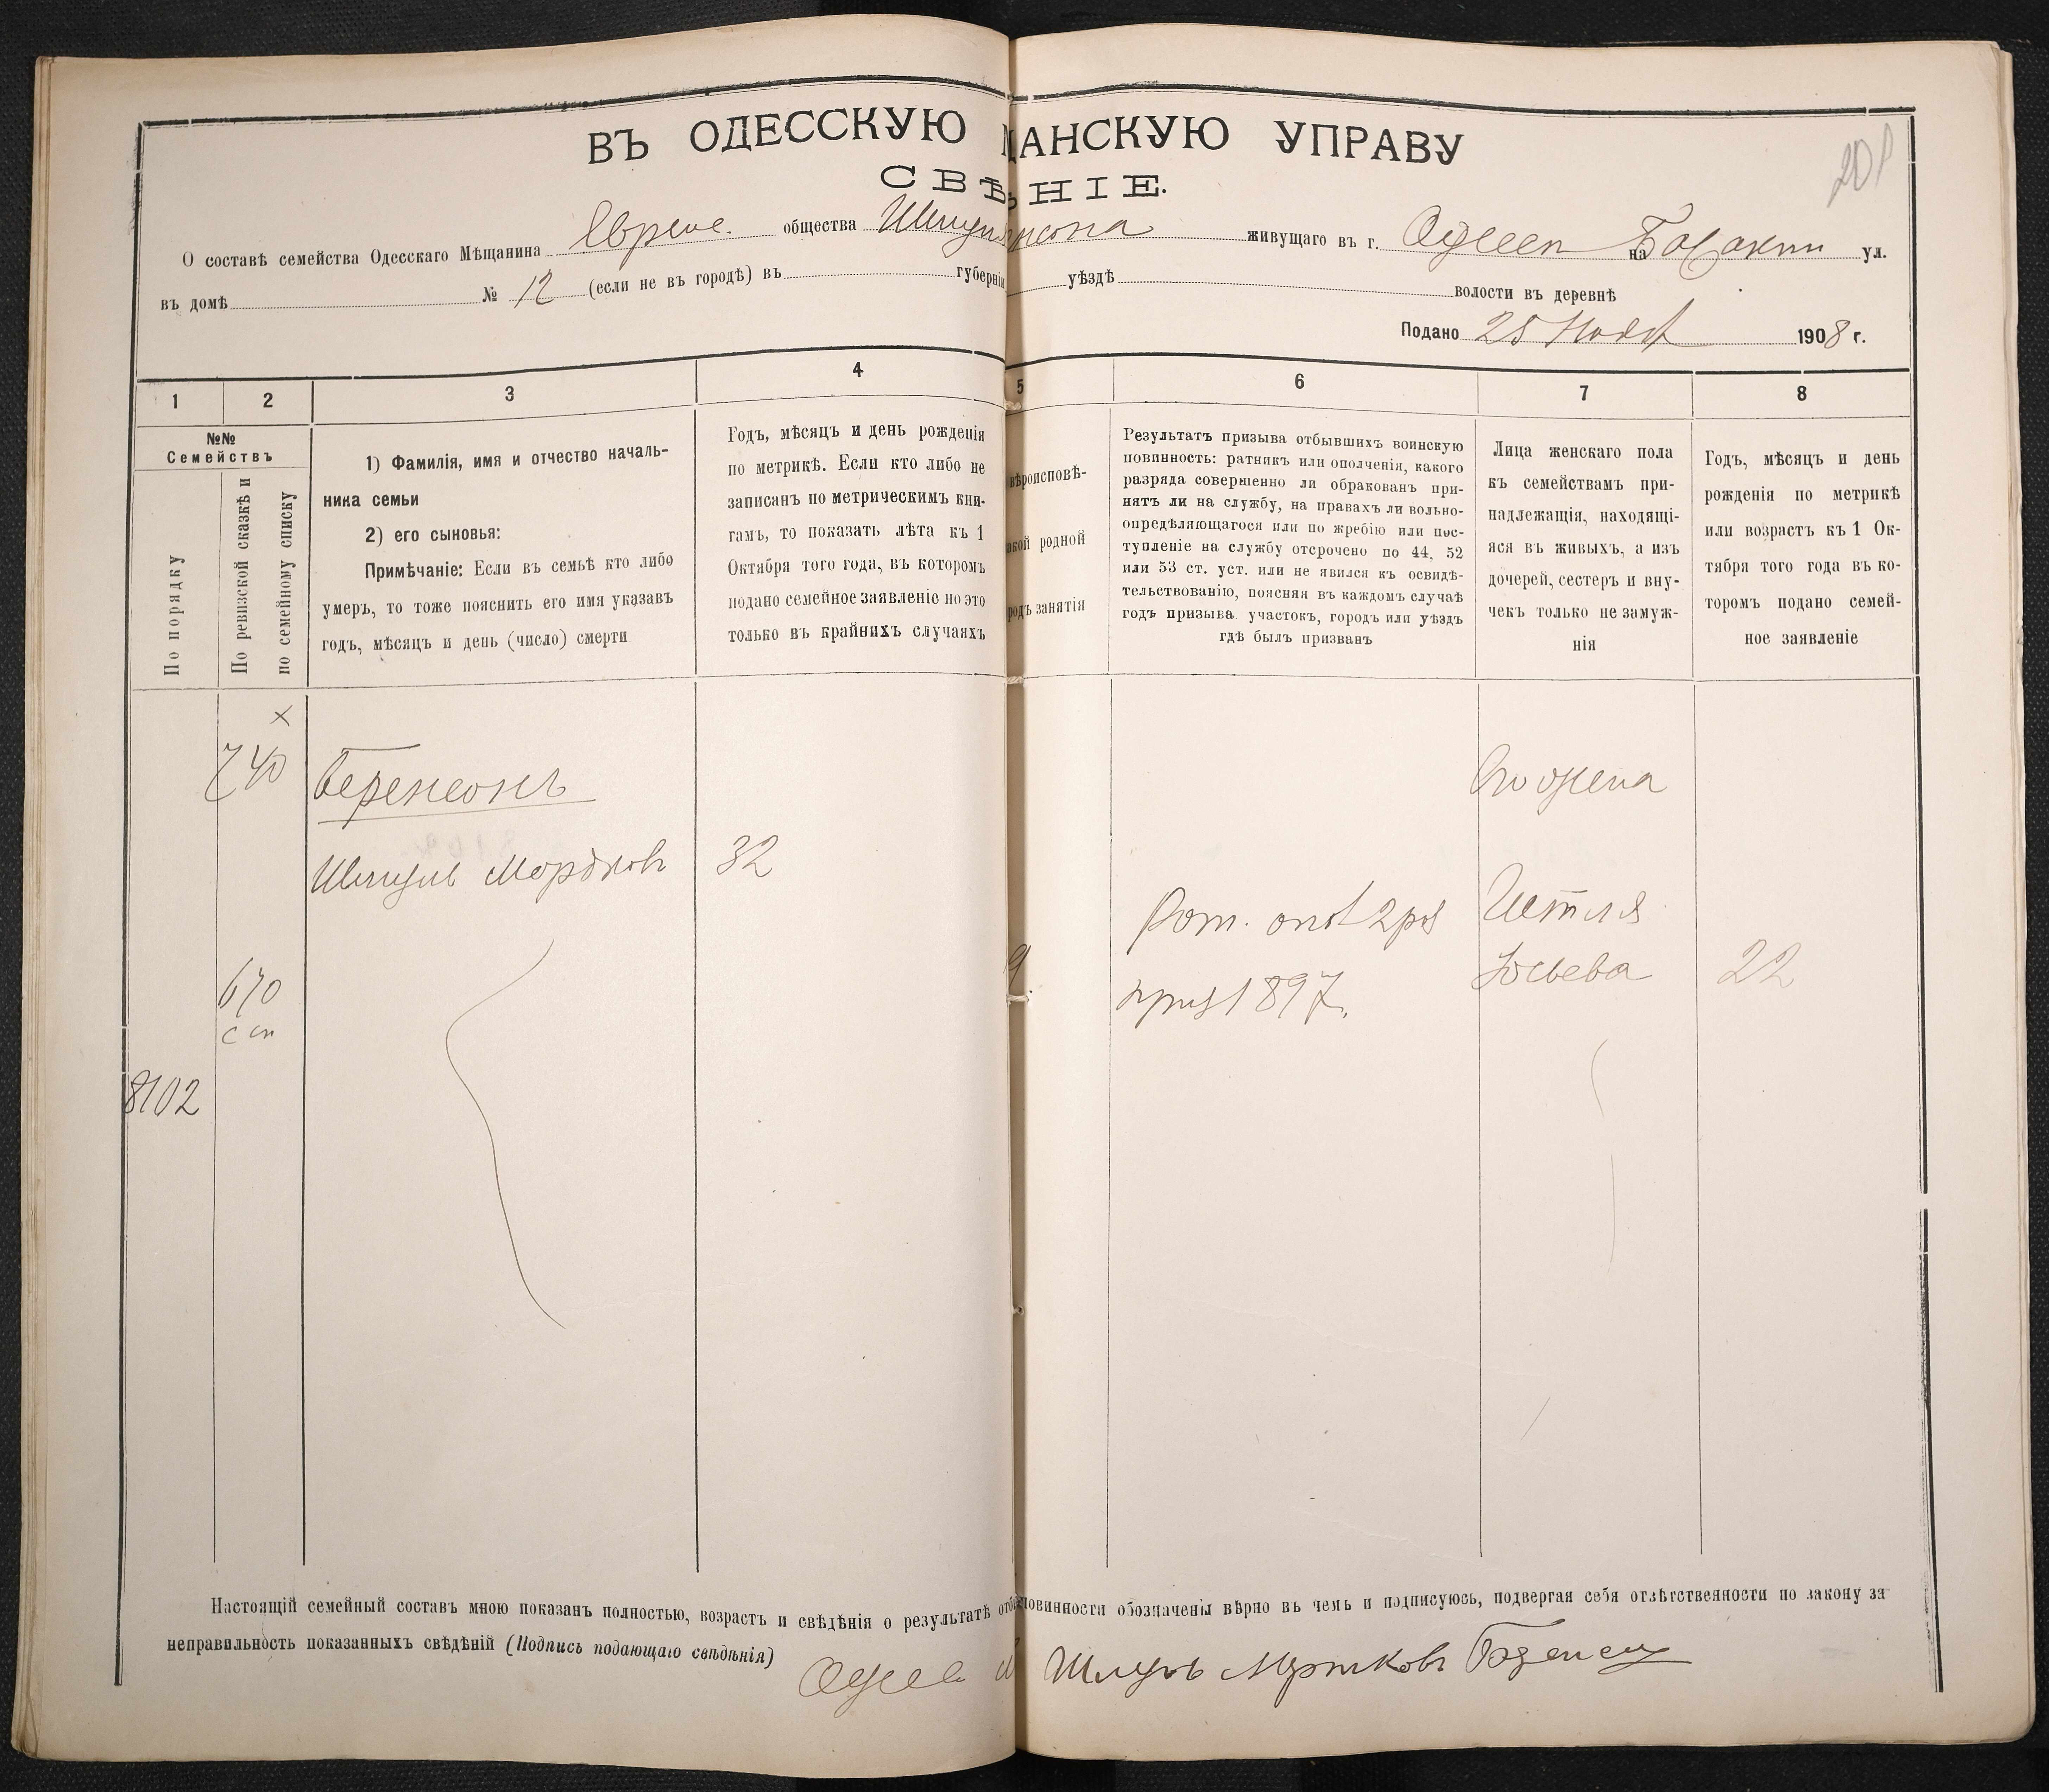 ВЪ ОДЕССКУЮ АНСКУЮ УПРАВУ
СВѢ НІЕ.
201
О составѣ семейства Одесскаго Мѣщанина Еврейс. общества живущаго въ г. на ул.
въ домѣ № 12 (если не въ городѣ) въ губерніи уѣздѣ волости въ деревнѣ
Подано 25 1908 г.
1 2 3 4 5 6 7 8
№№
Семействъ
По порядку
По ревизской сказкѣ и
по семейному списку
1) Фамилія, имя и отчество началь-
ника семьи
2) его сыновья:
Примѣчаніе: Если въ семьѣ кто либо
умеръ, то тоже пояснить его имя указавъ
годъ, мѣсяцъ и день (число) смерти
Годъ, мѣсяцъ и день рожденія
по метрикѣ. Если кто либо не
записанъ по метрическимъ кни-
гамъ, то показать лѣта къ 1
Октября того года, въ которомъ
подано семейное заявленіе но это
только въ крайнихъ случаяхъ
вѣроисповѣ-
родной
занятія
Результатъ призыва отбывшихъ воинскую
повинность: ратникъ или ополченія, какого
разряда совершенно ли обракованъ при-
нятъ ли на службу, на правахъ ли вольно-
опредѣляющагося или по жребію или пос-
тупленіе на службу отсрочено по 44, 52
или 53 ст. уст. или не явился къ освидѣ-
тельствованію, поясняя въ каждомъ случаѣ
годъ призыва участокъ, городъ или уѣздъ
гдѣ былъ призванъ
Лица женскаго пола
къ семействамъ при-
надлежащія, находящі-
яся въ живыхъ, а изъ
дочерей, сестеръ и вну-
чекъ только не замуж-
нія
Годъ, мѣсяцъ и день
рожденія по метрикѣ
или возрастъ къ 1 Ок-
тября того года въ ко-
торомъ подано семей-
ное заявленіе
740 Беренсонъ Его жена
Шмуль Мордковъ 32
Рат. опол 2 рз Истля
670 приз 1897 Юсьева 22
с сп
8102
Настоящій семейный составъ мною показанъ полностью, возрастъ и свѣдѣнія о результатѣ повинности обозначены вѣрно въ чемъ и подписуюсь, подвергая себя отвѣтственности по закону за
неправильность показанныхъ свѣдѣній (Подпись подающаго свѣдѣнія)
Шмуль Мортковъ